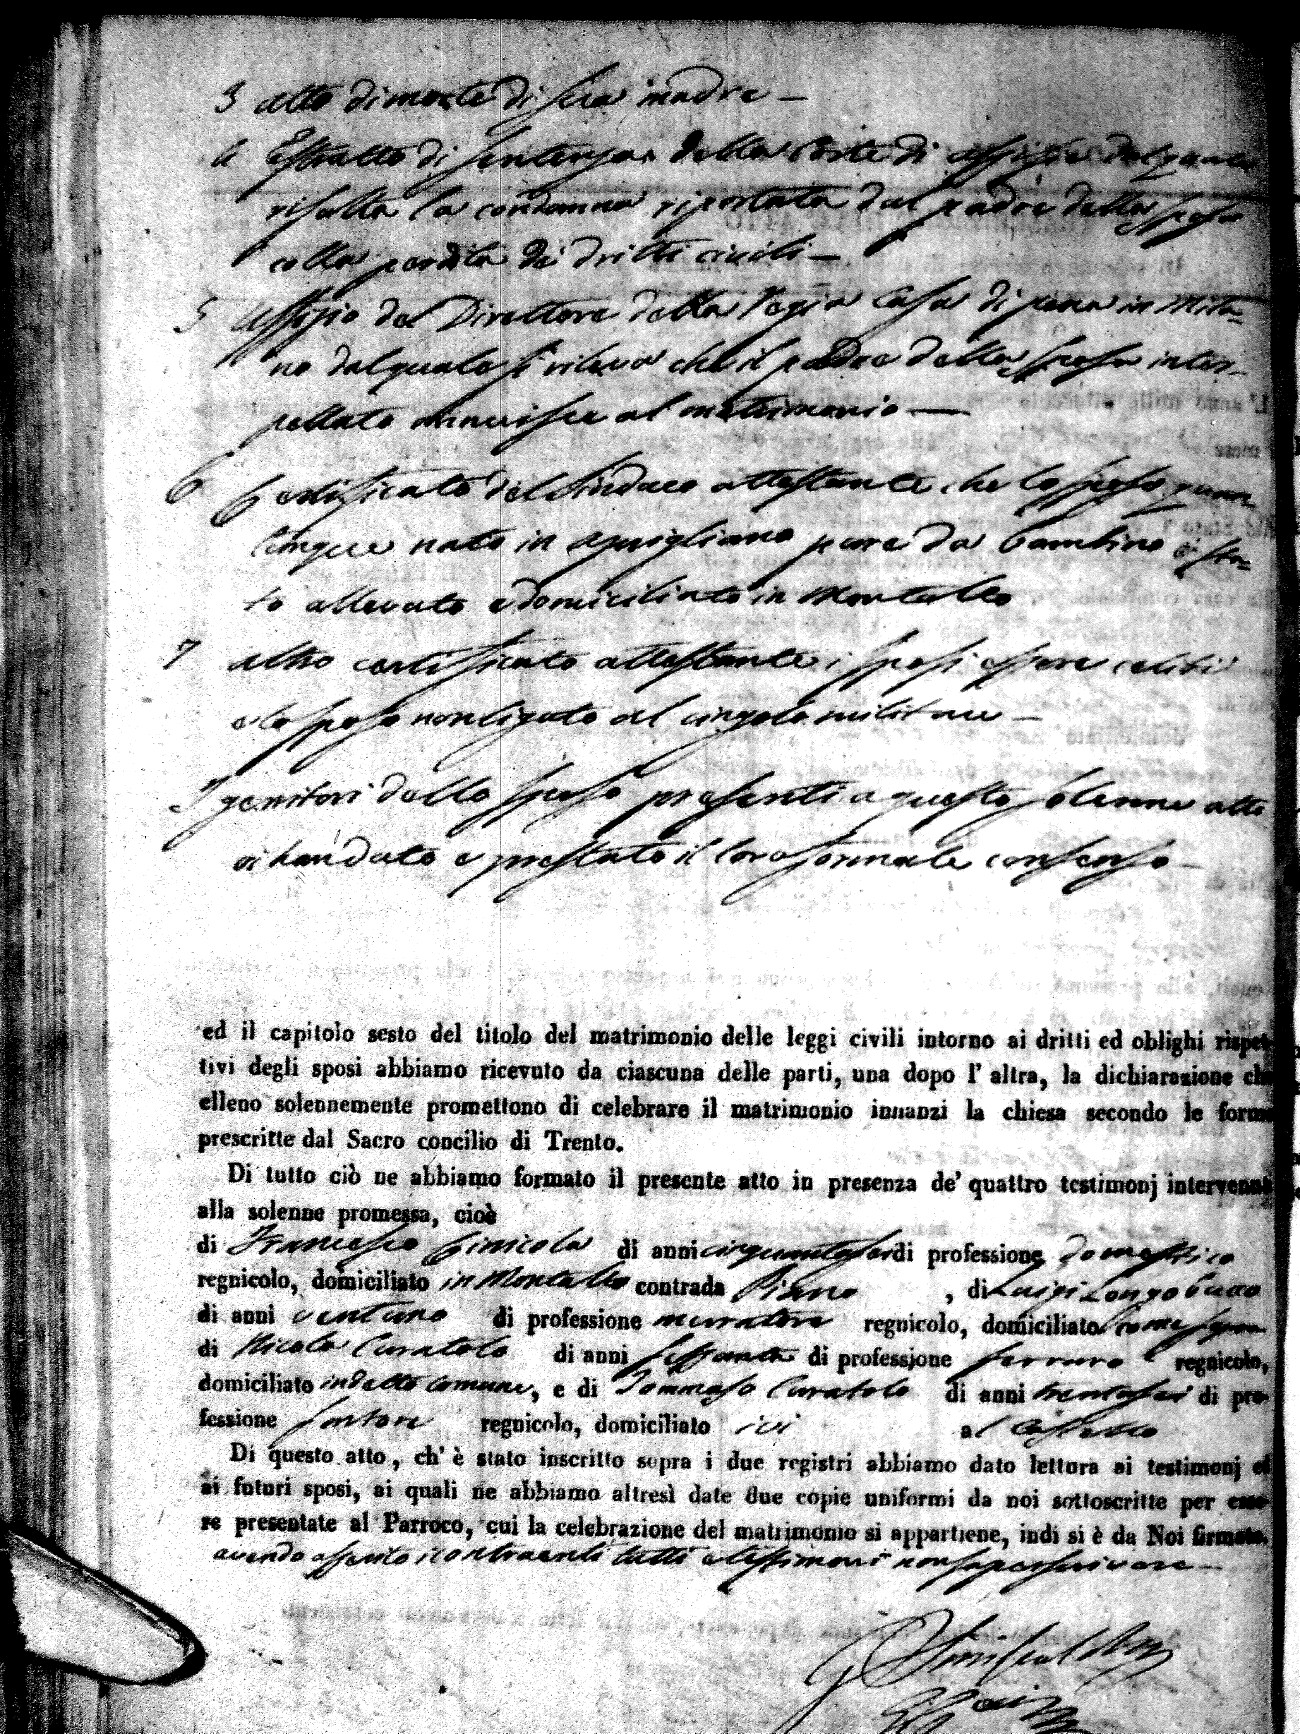 3 Atto di morte di sua madre —
4 Estratto di sentenza della Corte di Assisie dal quale
risulta la condanna riportata dal padre della sposa
colla perdita de' dritti civili —
5 Uffizio del Direttore della Regia Casa di pena in Mila-
no dal quale si rileva che il padre della sposa inter-
pellato annuisce al matrimonio —
6 Certificato del Sindaco attestante che lo sposo quan-
tunque nato in Aprigliano pure da bambino è sta-
to allevato e domiciliato in Montalto
7 altro certificato attestante i sposi essere celibi
e lo sposo non ligato al cingolo militare —
I genitori dello sposo presenti a questo solenne atto
han dato e prestato il loro formale consenso —
ed il capitolo sesto del titolo del matrimonio delle leggi civili intorno ai dritti ed oblighi rispet-
tivi degli sposi abbiamo ricevuto da ciascuna delle parti, una dopo l' altra, la dichiarazione che
elleno solennemente promettono di celebrare il matrimonio innanzi la chiesa secondo le forme
prescritte dal Sacro concilio di Trento.
Di tutto ciò ne abbiamo formato il presente atto in presenza de' quattro testimonj intervenuti
alla solenne promessa, cioè
di Francesco Cinicola di anni cinquantasei di professione domestico
regnicolo, domiciliato in Montalto contrada Piano , di Luigi Longobucco
di anni ventuno di professione muratore regnicolo, domiciliato come sopra
di Nicola Curatolo di anni sessanta di professione ferraro regnicolo,
domiciliato in detto comune, e di Tommaso Curatolo di anni trentasei di pro-
fessione sartore regnicolo, domiciliato ivi al
Di questo atto, ch' è stato inscritto sopra i due registri abbiamo dato lettura ai testimonj ed
ai futuri sposi, ai quali ne abbiamo altresì date due copie uniformi da noi sottoscritte per esse-
re presentate al Parroco, cui la celebrazione del matrimonio si appartiene, indi si è da Noi firmato.
avendo asserito i contraenti tutti e testimoni non saper scrivere —